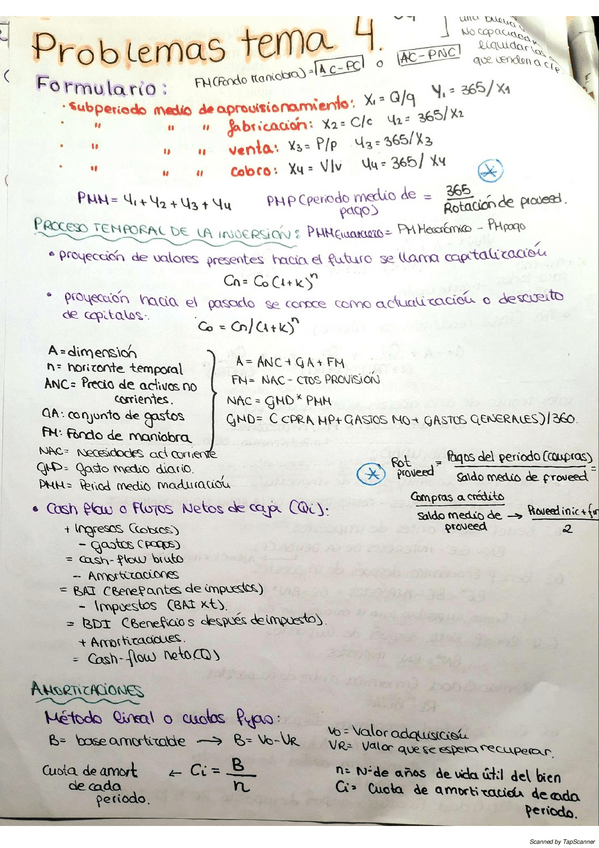 Problemas tema 4.
FM(Fondo Maniobra)= AC-PC o AC-PNC
una buena
No capacidad
liquidar los
que venden a cré
Formulario:
· subperiodo medio de aprovisionamiento: X1 = Q/q Y1 = 365/X1
· " " " fabricación: X2 = C/c Y2 = 365/X2
· " " " venta: X3 = P/p Y3 = 365/X3
· " " " cobro: X4 = V/v Y4 = 365/X4
PMM = Y1 + Y2 + Y3 + Y4
PMP (periodo medio de pago) = 365 / Rotación de proveed.
PROCESO TEMPORAL DE LA INVERSIÓN: PMMfinanciero = PMMeconómico - PMpago
• proyección de valores presentes hacia el futuro se llama capitalización
Cn = Co (1+k)^n
• proyección hacia el pasado se conoce como actualización o descuento
de capitales:
Co = Cn/(1+k)^n
A = dimensión
n = horizonte temporal
ANC = Precio de activos no
corrientes.
GA: conjunto de gastos
FM: Fondo de maniobra
NAC = Necesidades act corriente
GMD = Gasto medio diario.
PMM = Period medio maduración
A = ANC + GA + FM
FM = NAC - CTOS PROVISIÓN
NAC = GMD * PMM
GMD = (CPRA MP + GASTOS MO + GASTOS GENERALES)/360.
Rot proveed = Pagos del periodo (compras) / Saldo medio de proveed =
Compras a crédito / saldo medio de proveed → Proveed inic + fin / 2
• Cash flow o Flujos Netos de caja (Qi):
+ Ingresos (cobros)
- gastos (pagos)
= cash-flow bruto
- Amortizaciones
= BAI (Benef antes de impuestos)
- Impuestos (BAI x t).
= BDI (Beneficios después de impuesto).
+ Amortizaciones.
= Cash-flow neto (Q)
AMORTIZACIONES
Método lineal o cuotas fijas:
B = base amortizable → B = Vo - VR
Vo = Valor adquisición
VR = Valor que se espera recuperar.
Cuota de amort
de cada
periodo.
← Ci = B / n
n = Nº de años de vida útil del bien
Ci = Cuota de amortización de cada
periodo.
Scanned by TapScanner